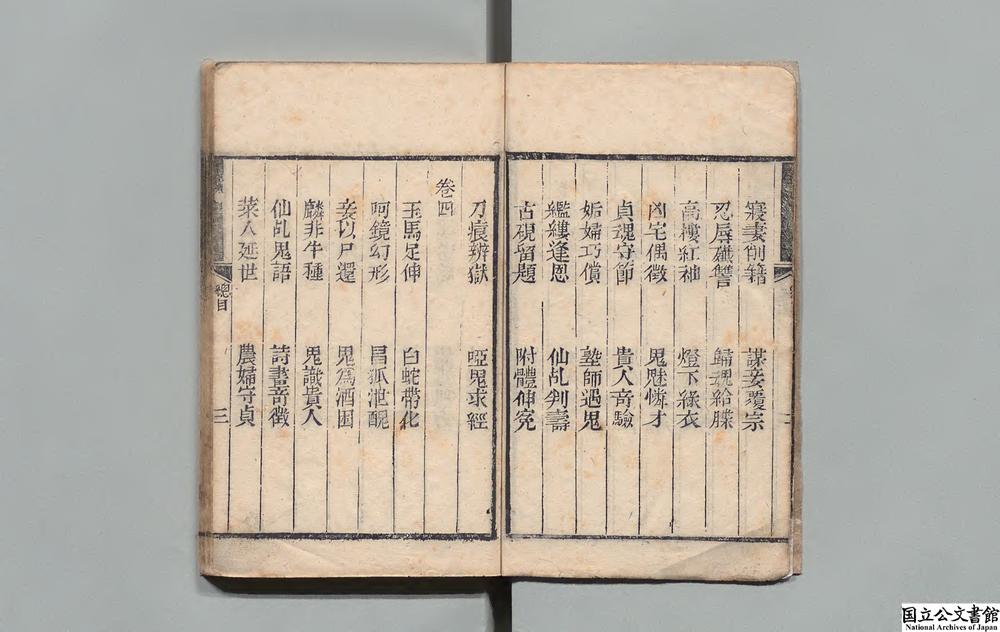 寢妻削籍 謀妾覆宗
忍辱礲讐 歸魂給牒
高樓紅袖 燈下綠衣
凶宅偶徵 鬼魅憐才
貞魂守節 貴人奇驗
妬婦巧償 塾師遇鬼
繿縷逢恩 仙乩判壽
古硯留題 附體伸寃
刀痕辨獄 啞鬼求經
卷四
玉馬足伸 白蛇帶化
呵鏡幻形 冒狐泄醜
妾以尸還 鬼爲酒困
麟非牛種 鬼識貴人
仙乩鬼語 詩書奇徵
菜人延世 農婦守貞
總目 三
国立公文書館
National Archives of Japan